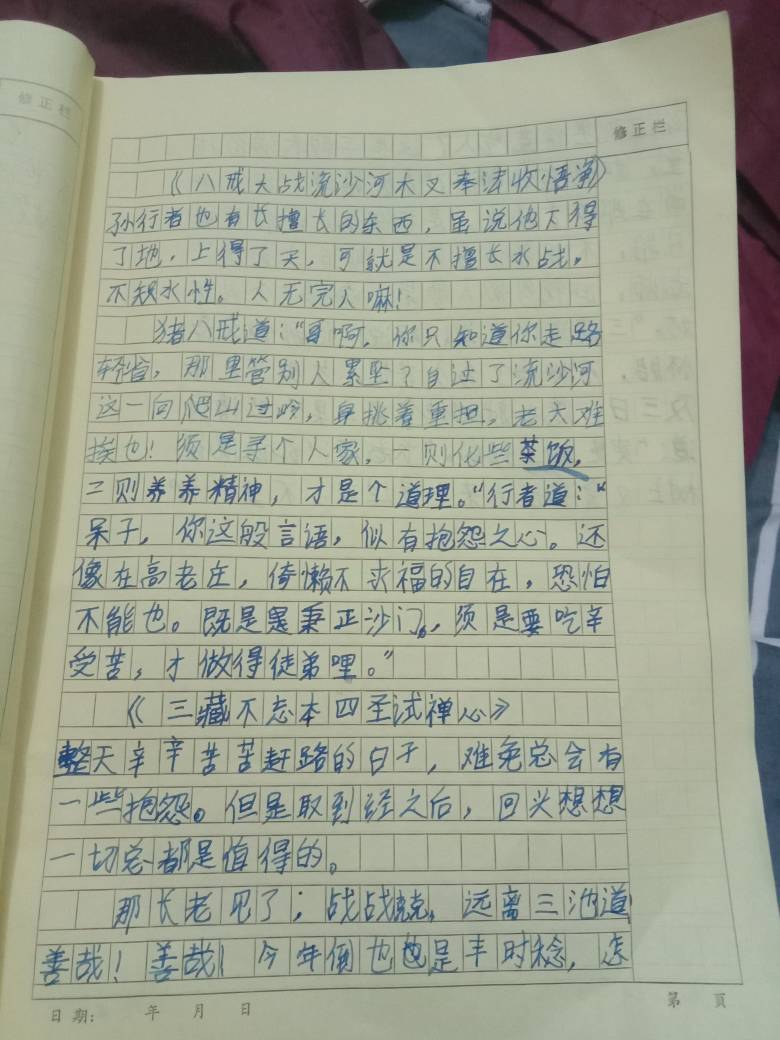 修正栏
修正栏
《八戒大战流沙河木叉奉法收悟净》
孙行者也有长擅长的东西，虽说他下得
了地，上得了天，可就是不擅长水战，
不识水性。人无完人嘛！
猪八戒道：“哥啊，你只知道你走路
轻省，那里管别人累坠？自过了流沙河
这一向爬山过岭，身挑着重担，老大难
挨也！须是寻个人家，一则化些茶饭，
二则养养精神，才是个道理。“行者道：“
呆子，你这般言语，似有抱怨之心。还
像在高老庄，倚懒不求福的自在，恐怕
不能也。既是是秉正沙门，须是要吃辛
受苦，才做得徒弟哩。”
《三藏不忘本四圣试禅心》
整天辛辛苦苦赶路的日子，难免总会有
一些抱怨。但是取到经之后，回头想想
一切总都是值得的。
那长老见了，战战兢兢，远离三池道
善哉！善哉！今年倒也也是丰时稔，怎
日期： 年 月 日
第 页